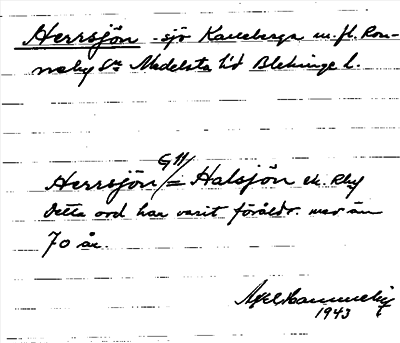 Herrsjön - sjö Kalleberga m. fl. Ron-
neby sn Medelsta hd Blekinge l.
G 11/
Herrsjön = Halsjön ek. Rby
Detta ord har varit föråldr. mer än
70 år.
Axel Hammeby
1943